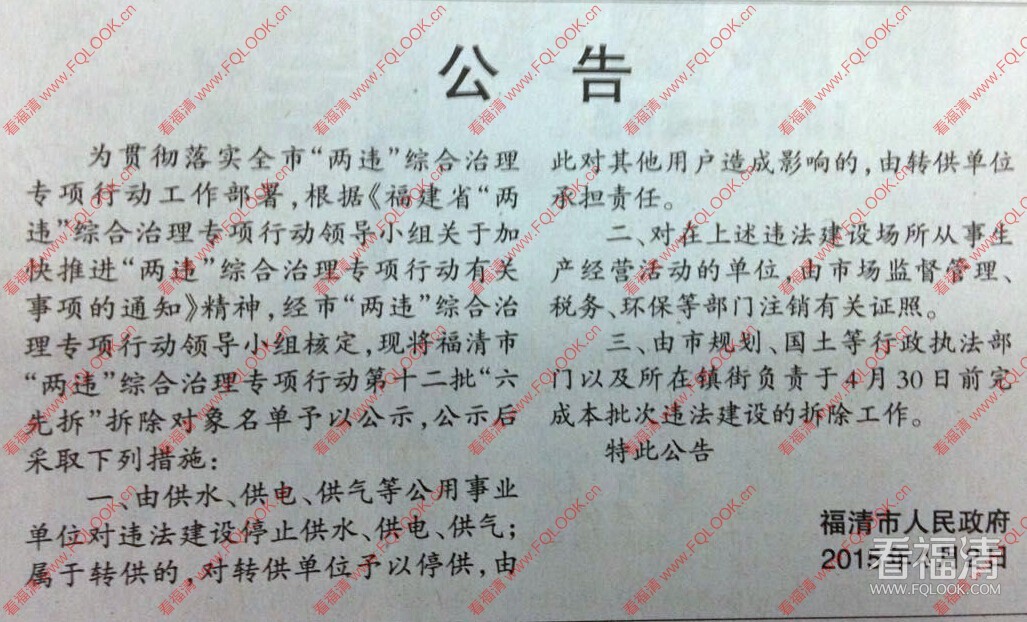 公 告
为贯彻落实全市“两违”综合治理
专项行动工作部署,根据《福建省“两
违”综合治理专项行动领导小组关于加
快推进“两违”综合治理专项行动有关
事项的通知》精神,经市“两违”综合治
理专项行动领导小组核定,现将福清市
“两违”综合治理专项行动第十二批“六
先拆”拆除对象名单予以公示,公示后
采取下列措施:
一、由供水、供电、供气等公用事业
单位对违法建设停止供水、供电、供气;
属于转供的,对转供单位予以停供,由
此对其他用户造成影响的,由转供单位
承担责任。
二、对在上述违法建设场所从事生
产经营活动的单位,由市场监督管理、
税务、环保等部门注销有关证照。
三、由市规划、国土等行政执法部
门以及所在镇街负责于4月30日前完
成本批次违法建设的拆除工作。
特此公告
福清市人民政府
2015年
看福清
WWW.FQLOOK.COM
看福清 www.FQLOOK.cn